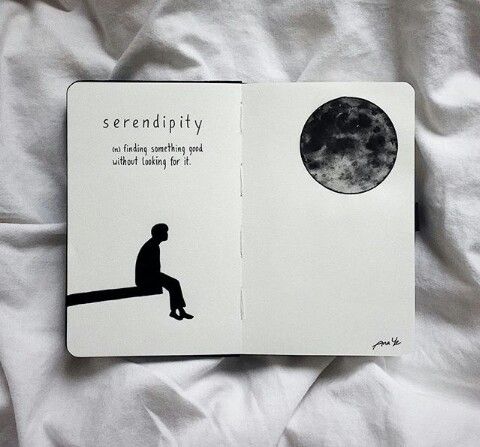 serendipity
(n) finding something good
without looking for it.